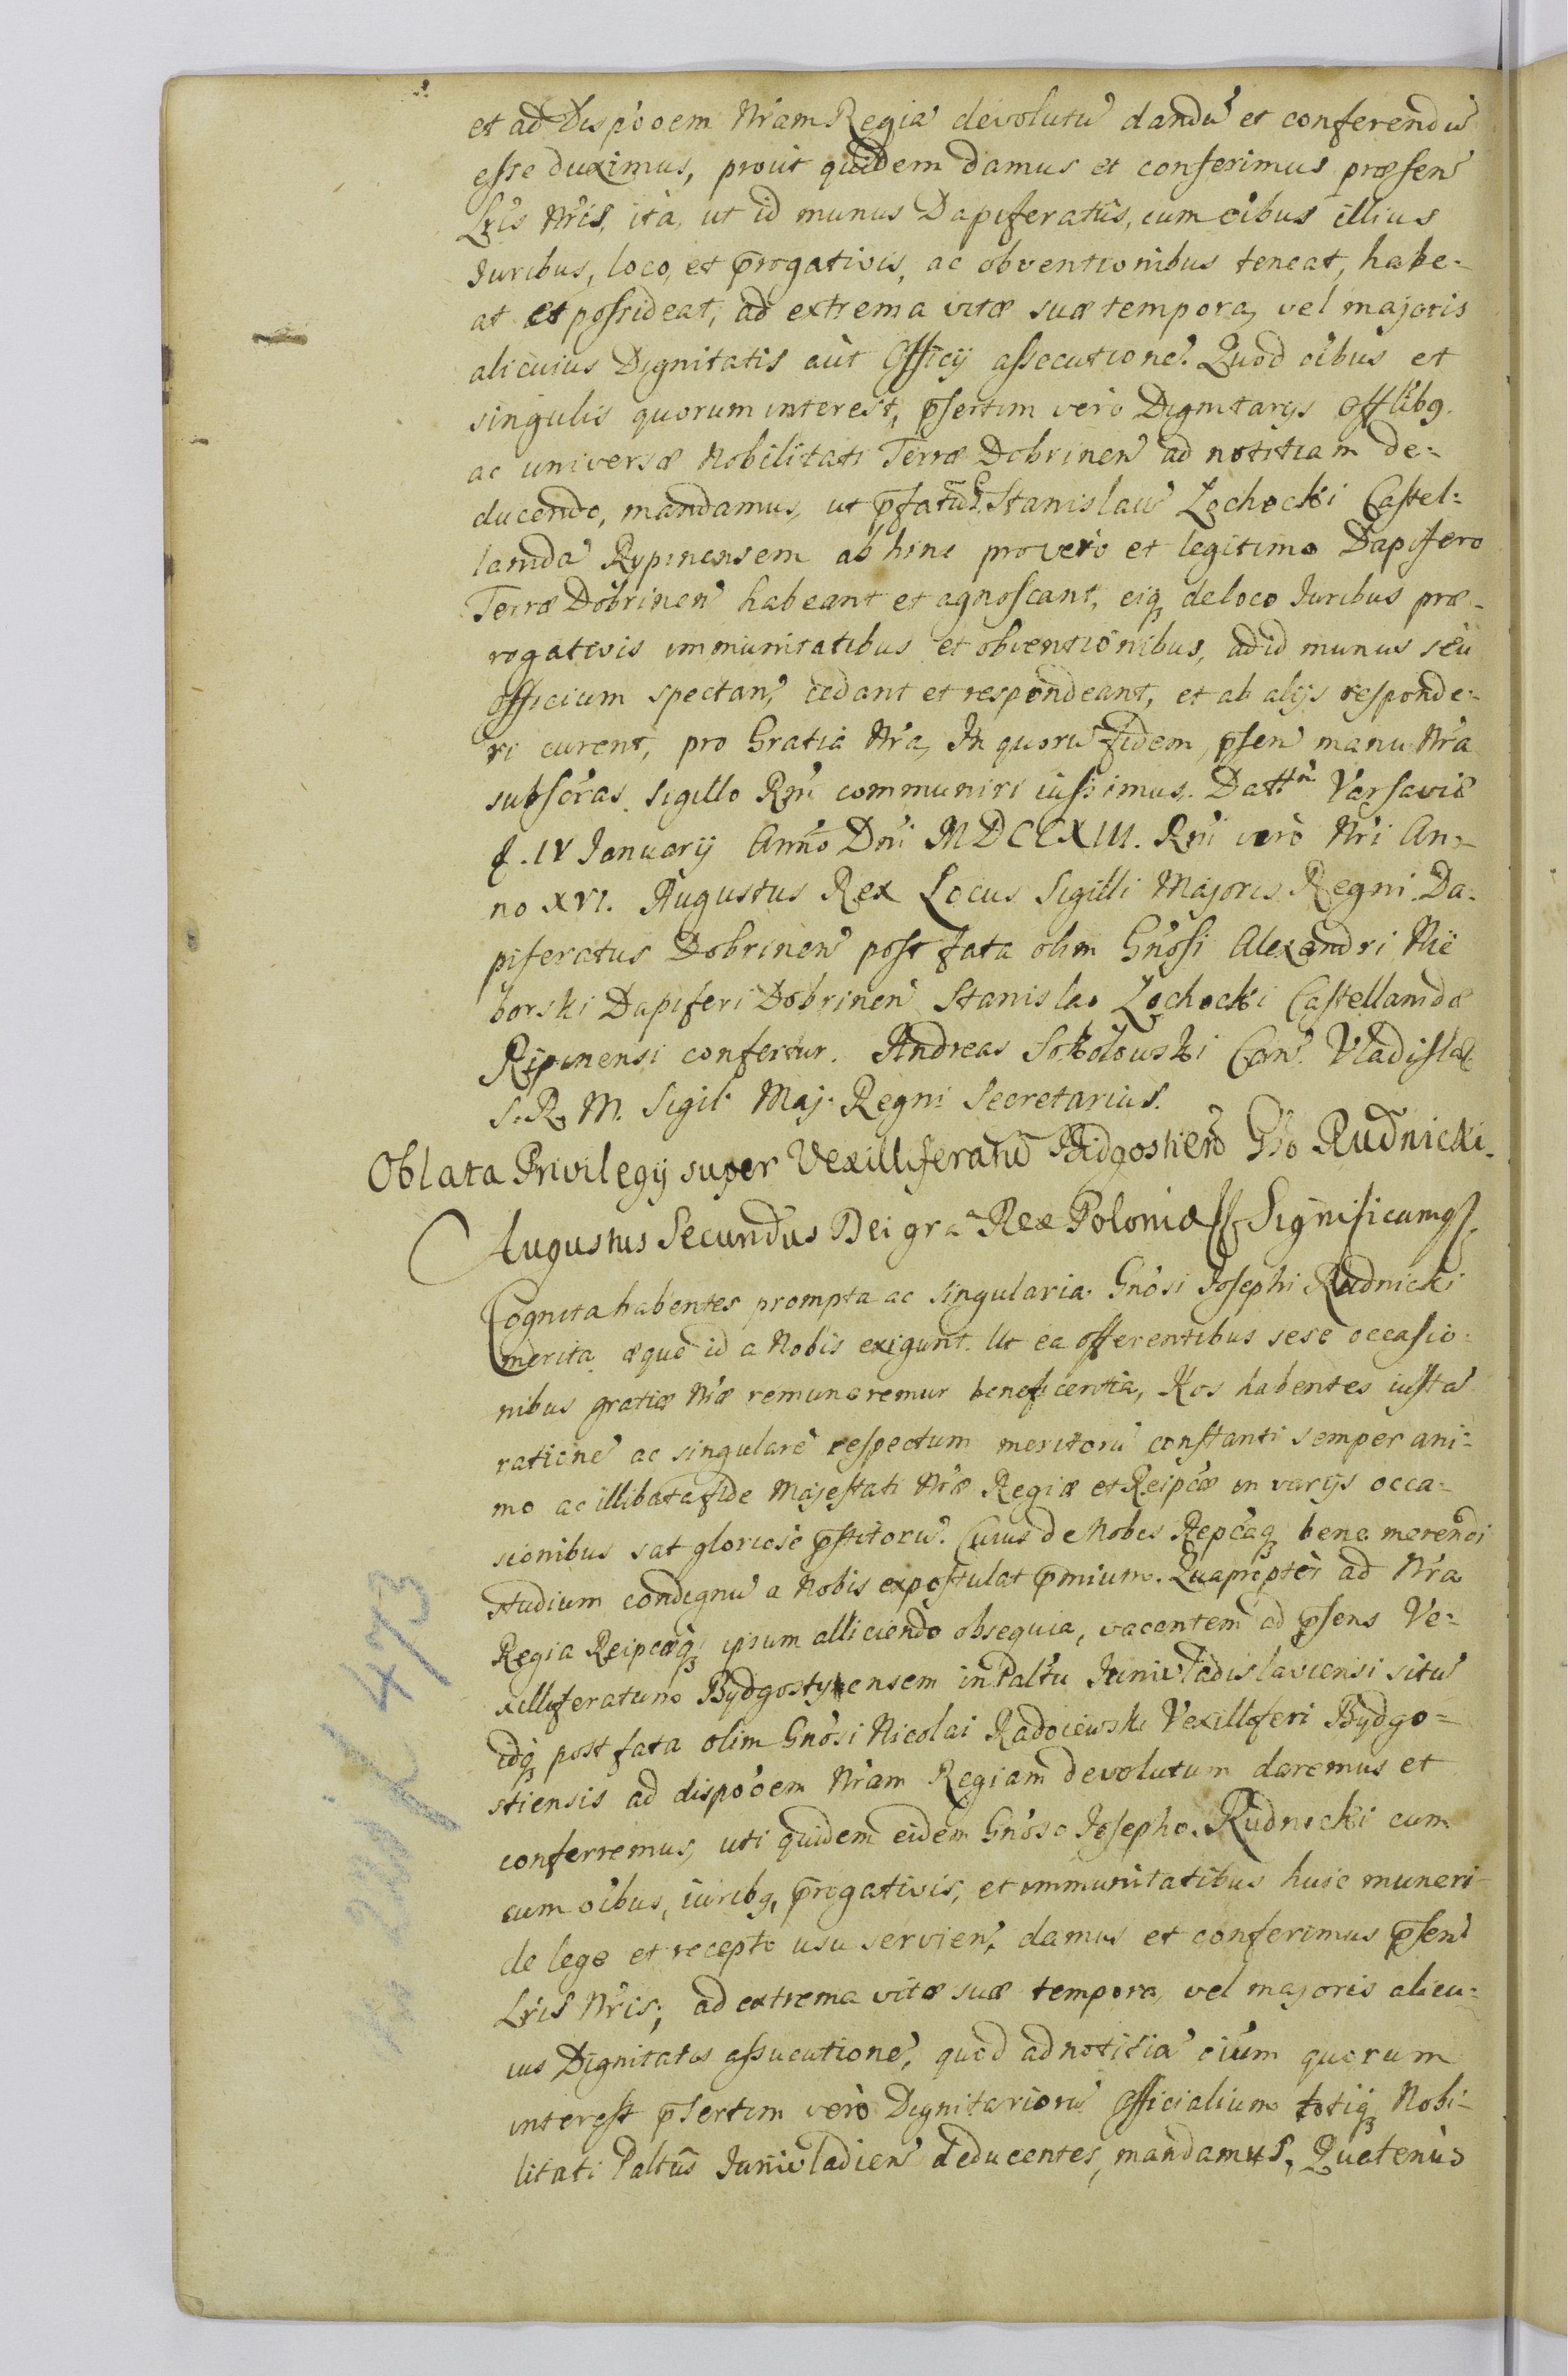 et ad Dispõoem Nr̃am Regia᷈ devolutu᷈ dandu᷈ et conferendu᷈
esse duximus, prout quidem damus et conferimus præsen᷈
Lr̃is Nr̃is, ita, ut id munus Dapiferatus, cum oĩbus illius
Juribus, loco, et p̄rogativis, ac obventionibus teneat, habe-
at et possideat, ad extrema vitæ suæ tempora, vel majoris
alicuius Dignitatis aut Officij assecutione᷈. Quod oĩbus et
singulis quorum interest, p̄sertim vero Dignitarijs Offlibg.
ac universæ Nobilitati Terræ Dobrinen᷈ ad notitiam de-
ducendo, mandamus, ut p̄fatu᷈ G. Stanislau᷈ Łochocki Castel:
lanida᷈ Rypinensem ab hinc pro vero et legitimo Dapifero
Terræ Dobrinen᷈ habeant et agnoscant, eiqꝫ de loco Juribus præ-
rogativis immunitatibus et obventionibus, ad id munus seu
officium spectan᷈, cedant et respondeant, et ab alijs responde-
ri curent, pro Gratia Nr̃a, In quoru᷈ fidem, p̄sen᷈ manu Nr̃a
subscr̃as. Sigillo Rñi communiri iussimus. Datt᷈m Varsaviæ
d. IV January Anño Dñi MDCCXIII. Rñi vero Nr̃i An-
no XVI. Augustus Rex Locus Sigilli Majoris Regni. Da-
piferatus Dobrinen᷈ post fata olim Gñosi Alexandri Nie
borski Dapiferi Dobrinen᷈ Stanislao Łochocki Castellanidæ
Ripinensi confertur. Andreas Sokołowski Can᷈. Vladisla.
S. R. M. Sigil. Maj. Regni Secretarius.
Oblata Privilegij super Vexilliferatu᷈ Bidgostien᷈ Gño Rudnicki.
Augustus Secundus Dei gr̃a Rex Poloniæ ss Significamg ss
Cognita habentes prompta ac singularia Gñosi Josephi Rudnicki
merita æque id a Nobis exigunt. Ut ea offerentibus sese occasio:
nibus gratiæ Nr̃æ remuneremur beneficentia, Nos habentes iusta᷈
ratione᷈ ac singulare᷈ respectum meritoru᷈ constanti semper ani-
mo ac illibata fide Majestati Nr̃æ Regiæ et Reipc̃æ in varijs occa-
sionibus sat gloriose p̄stitoru᷈. Cuius de Nobis Repc̃aqꝫ bene merendi
studium condignu᷈ a Nobis expostulat p̄mium. Quapropter ad Nr̃a
Regia Reipcæqꝫ ipsum alliciendo obsequia, vacantem ad p̄sens Ve-
xilliferatum Bydgostyensem in Paltu Juniwladislaviensi situ᷈
idqꝫ post fata olim Gñosi Nicolai Radoiewski Vexilliferi Bydgo-
stiensis ad dispõoem Nr̃am Regiam devolutum daremus et
conferremus, uti quidem eidem Gñoso Josepho Rudnicki cum
cum oĩbus, iuribg, p̄rogativis, et immunitatibus huic muneri
de lege et recepto usu servien᷈. damus et conferimus p̄sen᷈
Lr̃is Nr̃is; ad extrema vitæ suæ tempora, vel majoris alicu-
ius Dignitatis assecutione᷈, quod ad notitia᷈ oĩum quorum
interest p̄sertim vero Dignitarioru᷈ Officialium totiqꝫ Nobi-
litati Paltus Juniwladien᷈ deducentes, mandamus, Quatenus
473